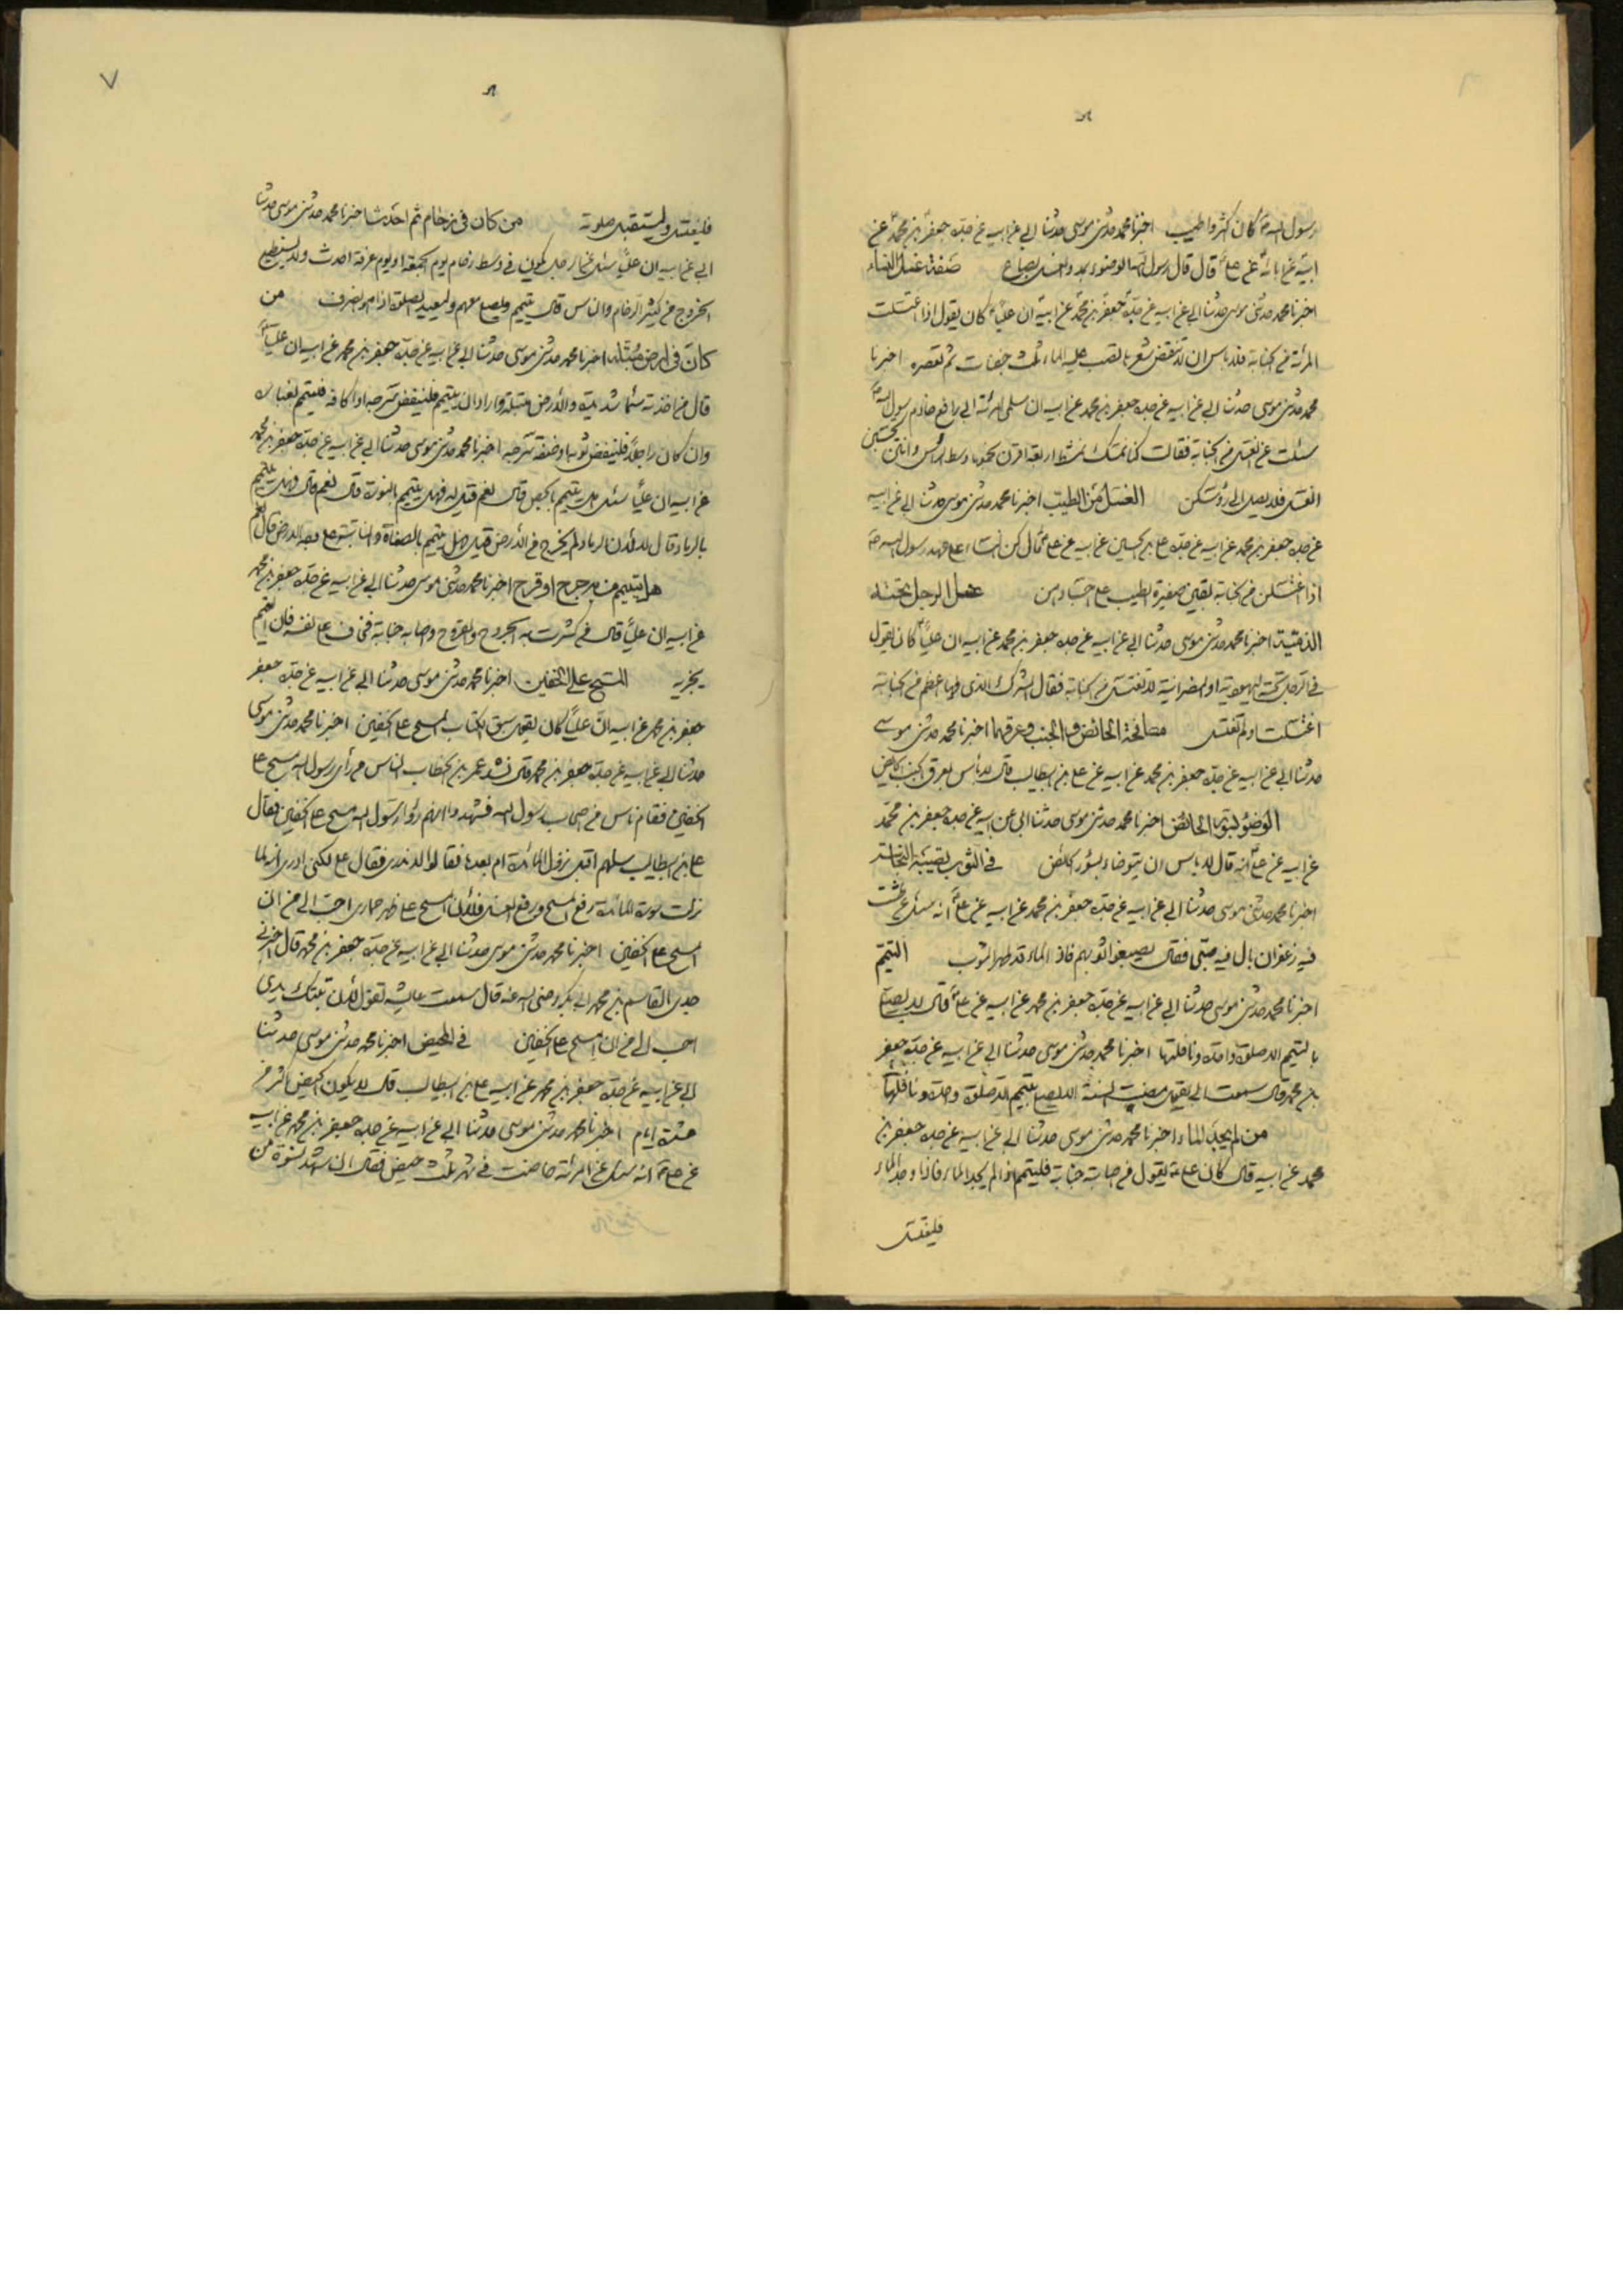 رسول الله ص كان كثروا طيب اخبرنا محمد حدثنى موسى حدثنا ابى عن ابيه عن جده جعفر بن محمد عن
ابيه عن ابائه عن على قال قال رسول الله الوضوء بمد والغسل بصاع صفة غسل النساء
اخبرنا محمد حدثنى موسى حدثنا ابى عن ابيه عن جده جعفر بن محمد عن ابيه ان عليا كان يقول اذا اغتسلت
المرئة من الجنابة فلا باس ان لا تنقض شعرها تصب عليه الماء ثلث حفنات ثم تعصره اخبرنا
محمد حدثنى موسى حدثنا ابى عن ابيه عن جده جعفر بن محمد عن ابيه ان سلمى امرئة ابى رافع خادم رسول الله ص
سئلت عن الغسل من الجنابة فقالت كنا نمتشط اربعة قرن نجمعها وسط الراس وانتن تجتنبن
الغسل فلا يصل الى رؤسكن الغسل من الطيب اخبرنا محمد حدثنى موسى حدثنا ابى عن ابيه
عن جده جعفر بن محمد عن ابيه عن جده على بن الحسين عن ابيه عن على قال كن النساء على عهد رسول الله ص
اذا اغتسلن من الجنابة يبقين صفرة الطيب على اجسادهن هل الرجل تحته
الذمية اخبرنا محمد حدثنى موسى حدثنا ابى عن ابيه عن جده جعفر بن محمد عن ابيه ان عليا كان يقول
فى الرجل تحته اليهودية او النصرانية لا تغتسل من الجنابة فقال الشرك الذى فيها اعظم من الجنابة
اغتسلت ولم تغتسل مصافحة الحائض والجنب وعرقهما اخبرنا محمد حدثنى موسى
حدثنا ابى عن ابيه عن جده جعفر بن محمد عن ابيه عن على بن ابيطالب قال لا باس بعرق الجنب والحائض
الوضوء بسؤر الحائض اخبرنا محمد حدثنى موسى حدثنا ابى عن ابيه عن جده جعفر بن محمد
عن ابيه عن على انه قال لا باس ان يتوضاء بسؤر الحائض فى الثوب تصيبه النجاسة
اخبرنا محمد حدثنى موسى حدثنا ابى عن ابيه عن جده جعفر بن محمد عن ابيه عن على انه سئل عن طشت
فيه زعفران بال فيه صبى فقال يصبغوا ثوبهم فاذا الماء قد طهر الثوب التيمم
اخبرنا محمد حدثنى موسى حدثنا ابى عن ابيه عن جده جعفر بن محمد عن ابيه عن على قال لا يصلى
بالتيمم الا صلوة واحدة ونافلتها اخبرنا محمد حدثنى موسى حدثنا ابى عن ابيه عن جده جعفر
بن محمد قال سمعت ابى يقول مضت السنة الا يصلى بتيمم الا صلوة واحدة ونافلتها
من لم يجد الماء اخبرنا محمد حدثنى موسى حدثنا ابى عن ابيه عن جده جعفر بن
محمد عن ابيه قال كان على يقول من اصابته جنابة فليتيمم اذا لم يجد الماء فاذا وجد الماء
فليغتسل
٧
فليغتسل وليستقبل صلوته من كان فى زحام ثم احدث اخبرنا محمد حدثنى موسى حدثنا
ابى عن ابيه ان عليا سئل عن رجل يكون فى وسط زحام يوم الجمعة او يوم عرفة احدث ولا يستطيع
الخروج من كثرة الزحام والناس قال يتيمم ويصلى معهم وليعيد الصلوة اذا هو انصرف من
كان فى ارض مبتلة اخبرنا محمد حدثنى موسى حدثنا ابى عن ابيه عن جده جعفر بن محمد عن ابيه ان عليا
قال من اخذته سماء شديدة والارض مبتلة واراد ان يتيمم فلينفض سرجه او اكافه فليتيمم بغباره
وان كان راجلا فلينفض ثوبه او صفة سرجه اخبرنا محمد حدثنى موسى حدثنا ابى عن ابيه عن جده جعفر بن محمد
عن ابيه ان عليا سئل هل يتيمم بالجص قال نعم فقيل له فهل يتيمم بالنورة قال نعم قال فهل يتيمم
بالرماد قال لا لان الرماد لم يخرج من الارض قيل هل يتيمم بالصفاة والنابتة على وجه الارض قال نعم
هل يتيمم من به جرح او قرح اخبرنا محمد حدثنى موسى حدثنا ابى عن ابيه عن جده جعفر بن محمد
عن ابيه ان عليا قال من كثرت به الجروح والقروح واصابه جنابة فخاف على نفسه فان التيمم
يجزيه المسح على الخفين اخبرنا محمد حدثنى موسى حدثنا ابى عن ابيه عن جده جعفر
جعفر بن محمد عن ابيه ان عليا كان يقول سبق الكتاب المسح على الخفين اخبرنا محمد حدثنى موسى
حدثنا ابى عن ابيه عن جده جعفر بن محمد قال نشد عمر بن الخطاب الناس من رأى رسول الله مسح على
الخفين فقام ناس من اصحاب رسول الله فشهدوا انهم رأوا رسول الله مسح على الخفين فقال
على بن ابيطالب سلهم اقبل نزول المائدة ام بعدها فقالوا لا ندرى فقال على لكنى ادرى انه لما
نزلت سورة المائدة رفع المسح ورفع الغسل فلان امسح على ظهر حمارى احب الى من ان
امسح على الخفين اخبرنا محمد حدثنى موسى حدثنا ابى عن ابيه عن جده جعفر بن محمد قال اخبرنى
جدى القاسم بن محمد ابى بكر رضى الله عنه قال سمعت عايشه تقول لان تبتك يدى
احب الى من ان امسح على الخفين فى المحيض اخبرنا محمد حدثنى موسى حدثنا
ابى عن ابيه عن جده جعفر بن محمد عن ابيه على بن ابيطالب قال لا يكون الحيض اكثر من
عشرة ايام اخبرنا محمد حدثنى موسى حدثنا ابى عن ابيه عن جده جعفر بن محمد عن ابيه
عن على انه سئل عن امرئة حاضت فى شهر ثلث حيض فقال ان شهد نسوة من